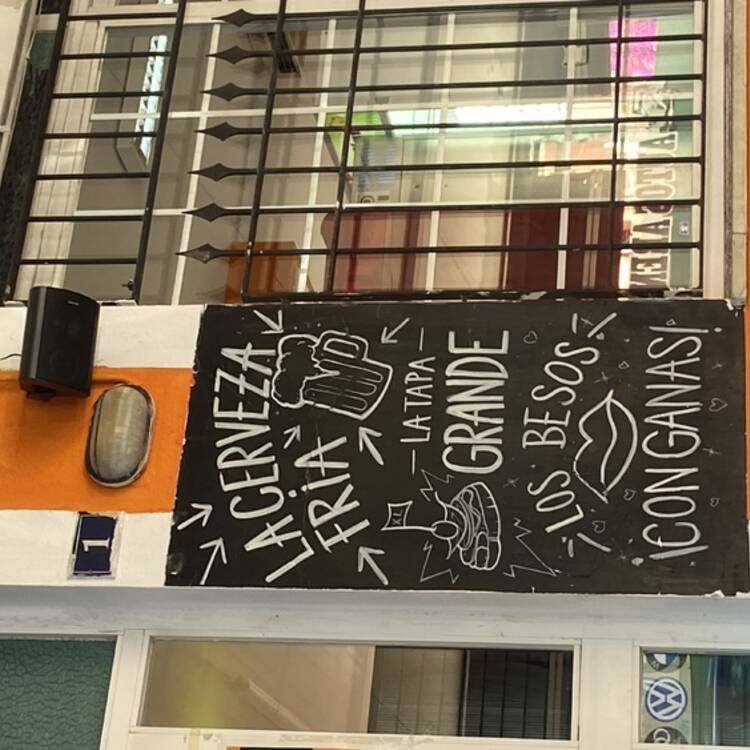 LA CERVEZA
FRIA
LA TAPA
GRANDE
XL
LOS BESOS
¡CON GANAS!
1